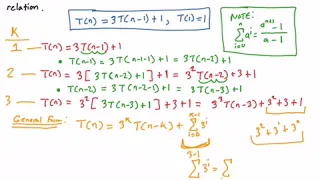 relation.
T(n) = 3T(n-1)+1 , T(1)=1
NOTE:
n
∑ aⁱ = (aⁿ⁺¹ - 1) / (a - 1)
i=0
K
1 — T(n) = 3T(n-1)+1
• T(n-1) = 3T(n-1-1)+1 = 3T(n-2)+1
2 — T(n) = 3[3T(n-2)+1]+1 = 3²T(n-2)+3+1
• T(n-2) = 3T(n-2-1)+1 = 3T(n-3)+1
3 — T(n) = 3²[3T(n-3)+1]+3+1 = 3³T(n-3)+3²+3+1
General Form: T(n) = 3ᵏT(n-k) + ∑ 3ⁱ
k-1
i=0
3²+3¹+3⁰
3-1
∑ 3ⁱ = ∑